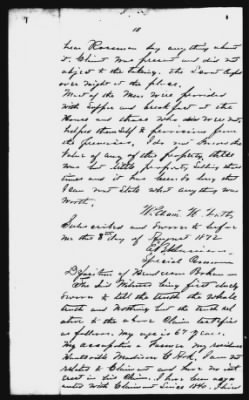 10
hear Roseman say anything about
it. Claimt was present and did not
object to the taking. The Servt kept
over night at the place.
Most of the Men were provided
with Supper and breakfast at the
House and those who did were not
helped themself to provisions from
the premises. I do not know the
value of any of this property, there
was but little property during the
times and it has been so long that
I can not State what anything was
worth.
William H.
Subscribed and sworn to before
me this 8th day of August 1872
Special Comm
Deposition of
The Said Witness being first duly
sworn to tell the truth the whole
truth and nothing but the truth rel
ative to the above Claim testifies
as follows. My age is 67 years
my occupation a Farmer my residence
Huntsville Madison C Ark, I am not
related to Claimant and have no int
rest in his Claim. I have been acqu
ainted with Claimant Since 1840. I lived